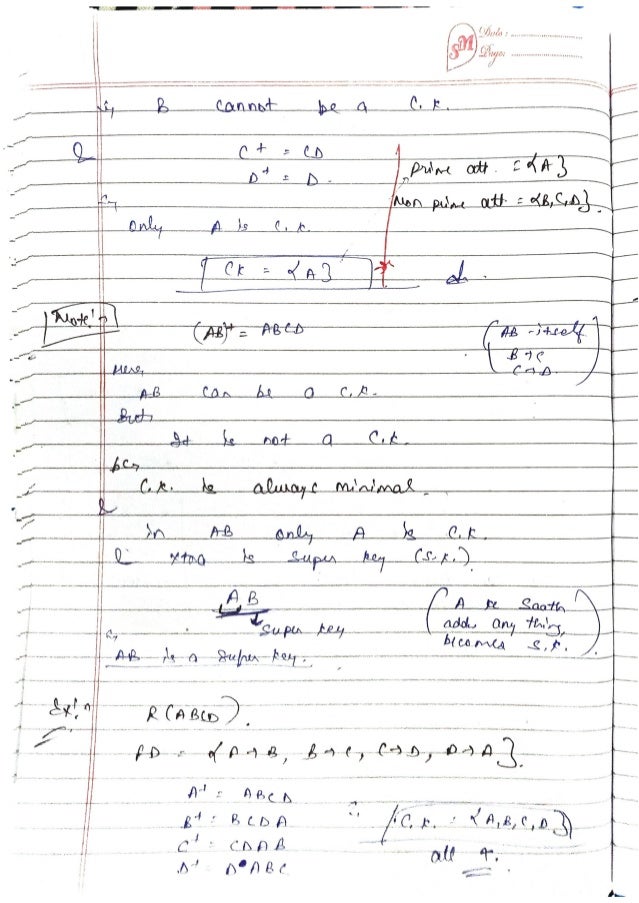 SM Date :
Page :
B cannot be a C.K.
& C+ = CD
D+ = D.
prime att. = {A}
Non prime att = {B,C,D}.
only A is C.K.
CK = {A}
Note:
(AB)+ = ABCD
(AB - itself
B → C
C → D)
Here,
AB can be a C.K.
But,
It is not a C.K.
bcz
C.K. is always minimal.
&
in AB only A is C.K.
& xtra is super key (S.K.).
AB
super key
(A ke Saath
adds any thing,
becomes S.K.)
AB is a super key.
Ex:
R(ABCD).
FD = {A→B, B→C, C→D, D→A}.
A+ = ABCD
B+ = BCDA
C+ = CDAB
D+ = DABC
∴ C.K. = {A,B,C,D}
all 4.